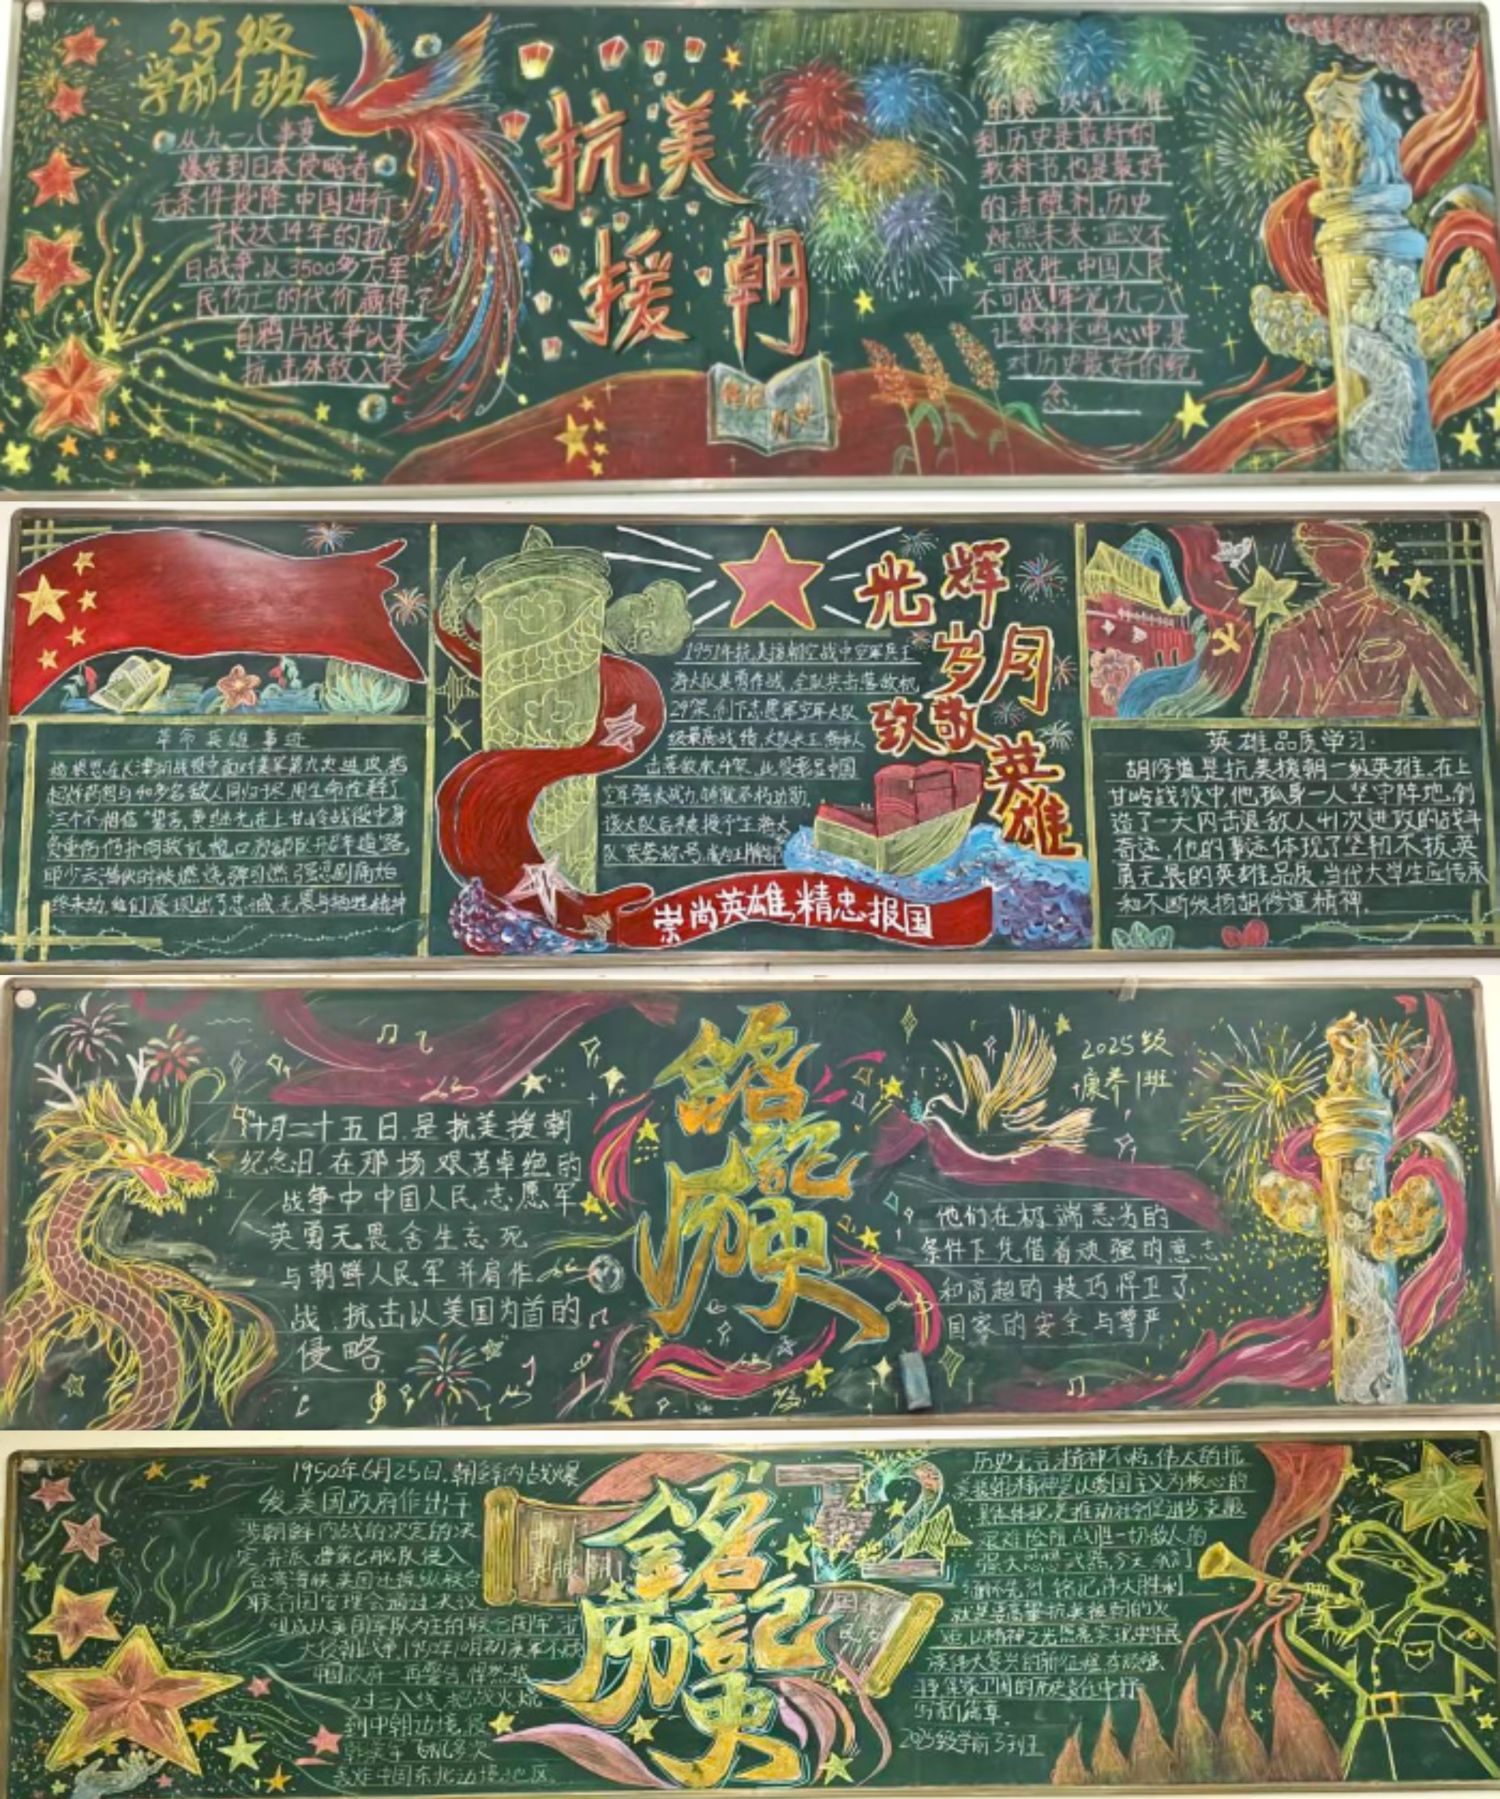 25级
学前4班
从九一八事变
爆发到日本侵略者
无条件投降,中国进行
了长达14年的抗
日战争,以3500多万军
民伤亡的代价赢得了
自鸦片战争以来
抗击外敌入侵
抗美
援朝
利,历史是最好的
教科书,也是最好
的清醒剂,历史
烛照未来,正义不
可战胜,中国人民
不可战 牢记九一八
让警钟长鸣心中是
对历史最好的纪
念。
革命英雄事迹
杨根思在长津湖战役中面对美军第六次进攻,抱
起炸药包与40多名敌人同归于尽,用生命诠释了
"三个不相信"誓言,黄继光在上甘岭战役中身
负重伤仍扑向敌机枪口为部队开辟道路
邱少云潜伏时被燃烧弹引燃,强忍剧痛始
终未动,他们展现出了忠诚、无畏与牺牲精神
1951年抗美援朝空战中空军兵王
海大队英勇作战,全队共击落敌机
29架,创下志愿军空军大队
级最高战绩,大队长王海本人
击落敌机4架,此役彰显中国
空军强大战力,铸就不朽功勋,
该大队后来被授予"王海大
队"荣誉称号,成为王牌部
光辉
岁月
致敬
英雄
崇尚英雄,精忠报国
英雄品质学习
胡修道是抗美援朝一级英雄,在上
甘岭战役中,他孤身一人坚守阵地,创
造了一天内击退敌人41次进攻的战斗
奇迹,他的事迹体现了坚韧不拔,英
勇无畏的英雄品质,当代大学生应传承
和不断发扬胡修道精神。
十月二十五日,是抗美援朝
纪念日,在那场艰苦卓绝的
战争中中国人民志愿军
英勇无畏舍生忘死
与朝鲜人民军并肩作
战,抗击以美国为首的
侵略
铭记
历史
2025级
康养1班
他们在极端恶劣的
条件下凭借着顽强的意志
和高超的技巧捍卫了
国家的安全与尊严
1950年6月25日,朝鲜内战爆
发,美国政府作出干
涉朝鲜内战的决定的决
定,并派遣第七舰队侵入
台湾海峡,美国还操纵联合
联合国安理会通过决议
组成以美国军队为主的联合国军
中国政府一再警告,悍然越
过三八线,把战火烧
到中朝边境,侵
轰炸中国东北边境地区。
铭记
历史
历史无言,精神不朽,伟大的抗
美援朝精神是以爱国主义为核心的
艰难险阻,战胜一切敌人的
缅怀先烈,铭记伟大胜利
就是要高擎抗美援朝的火
炬,以精神之光照亮实现中华民
写新篇章。
2025级学前3班